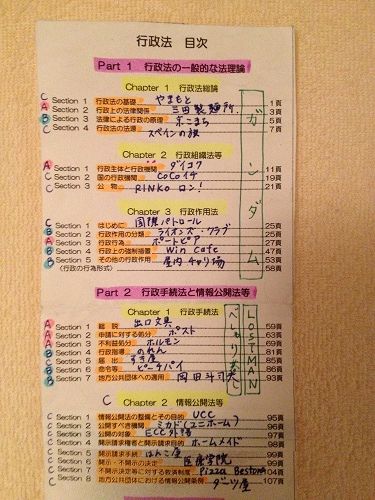 行政法 目次
Part 1 行政法の一般的な法理論
Chapter 1 行政法総論
C Section 1 行政法の基礎 やまもと 1頁
A Section 2 行政上の法律関係 三田製麺所 3頁
B Section 3 法律による行政の原理 ポこまち 5頁
C Section 4 行政法の法源 スペインの旗 7頁
Chapter 2 行政組織法等
A Section 1 行政主体と行政機関 ダイコク 11頁
C Section 2 国の行政機関 CoCoイチ 19頁
C Section 3 公物 RINKO ロン! 21頁
Chapter 3 行政作用法
C Section 1 はじめに 国際パトロール 25頁
B Section 2 行政作用の分類 ライオンズ・クラブ 25頁
A Section 3 行政行為 ポートピア 27頁
B Section 4 行政上の強制措置 Win Cafe 47頁
B Section 5 その他の行政作用 屋内チャリ場 53頁
(行政の行為形式) 58頁
ガンダム
Part 2 行政手続法と情報公開法等
Chapter 1 行政手続法
A Section 1 総説 出口文具 59頁
A Section 2 申請に対する処分 ポスト 63頁
A Section 3 不利益処分 ホルモン 69頁
A Section 4 行政指導 のれん 81頁
B Section 5 届出 すき屋 85頁
B Section 6 命令等 ピーチパイ 87頁
B Section 7 地方公共団体への適用 岡田斗司夫 93頁
LOSTMAN
C Chapter 2 情報公開法等
C Section 1 情報公開法の整備とその目的 UCC 95頁
C Section 2 公開すべき機関 ミカド(ユニホーム) 96頁
C Section 3 公開の対象 ECC外語 97頁
C Section 4 開示請求権者と開示請求目的 ホームメイド 98頁
C Section 5 開示請求手続 はんこ屋 99頁
C Section 6 開示・不開示の決定 医療学院
C Section 7 不開示決定等に対する救済制度 Pizza 104頁
C Section 8 地方公共団体における情報公開条例 ダーツ屋 107頁